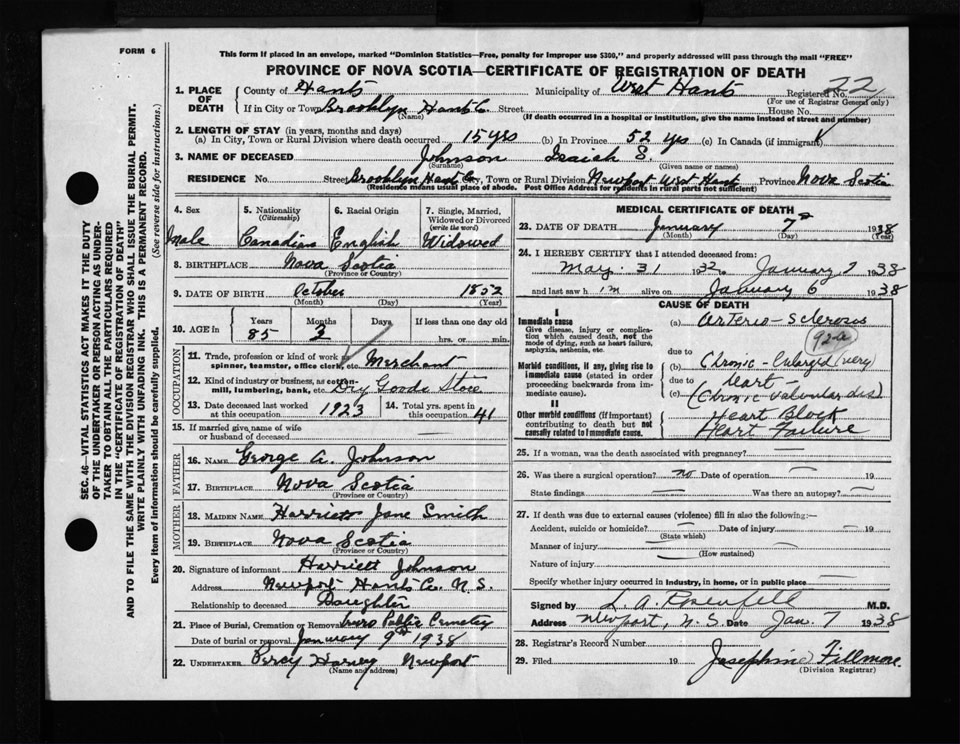 FORM 6
This form if placed in an envelope, marked "Dominion Statistics—Free, penalty for improper use $300," and properly addressed will pass through the mail "FREE"
PROVINCE OF NOVA SCOTIA—CERTIFICATE OF REGISTRATION OF DEATH
SEC. 46—VITAL STATISTICS ACT MAKES IT THE DUTY
OF THE UNDERTAKER OR PERSON ACTING AS UNDER-
TAKER TO OBTAIN ALL THE PARTICULARS REQUIRED
IN THE "CERTIFICATE OF REGISTRATION OF DEATH"
AND TO FILE THE SAME WITH THE DIVISION REGISTRAR WHO SHALL ISSUE THE BURIAL PERMIT.
WRITE PLAINLY WITH UNFADING INK. THIS IS A PERMANENT RECORD.
Every item of information should be carefully supplied. (See reverse side for instructions.)
1. PLACE OF DEATH
County of Hants Municipality of West Hants Registered No. 22
(For use of Registrar General only)
If in City or Town Brooklyn Hants Co. Street House No.
(Name) (If death occurred in a hospital or institution, give the name instead of street and number)
2. LENGTH OF STAY (in years, months and days)
(a) In City, Town or Rural Division where death occurred 15 yrs (b) In Province 52 yrs (c) In Canada (if immigrant)
3. NAME OF DECEASED Johnson Isaiah S.
(Surname) (Given name or names)
RESIDENCE No. Street Brooklyn Hants Co City, Town or Rural Division Newport West Hants Province Nova Scotia
(Residence means usual place of abode. Post Office Address for residents in rural parts not sufficient)
4. Sex 5. Nationality (Citizenship) 6. Racial Origin 7. Single, Married, Widowed or Divorced (write the word)
Male Canadian English Widowed
8. BIRTHPLACE Nova Scotia
(Province or Country)
9. DATE OF BIRTH October 1852
(Month) (Day) (Year)
10. AGE in Years Months Days If less than one day old
85 3 hrs. or min.
OCCUPATION
11. Trade, profession or kind of work as spinner, teamster, office clerk, etc. Merchant
12. Kind of industry or business, as cotton-mill, lumbering, bank, etc. Dry Goods Store
13. Date deceased last worked at this occupation 1923 14. Total yrs. spent in this occupation 41
15. If married give name of wife or husband of deceased
FATHER
16. NAME George A. Johnson
17. BIRTHPLACE Nova Scotia
(Province or Country)
MOTHER
18. MAIDEN NAME Harriett Jane Smith
19. BIRTHPLACE Nova Scotia
(Province or Country)
20. Signature of informant Harriett Johnson
Address Newport Hants Co. N.S.
Relationship to deceased Daughter
21. Place of Burial, Cremation or Removal Truro Public Cemetery
Date of burial or removal January 9th 1938
22. UNDERTAKER Percy Harvey Newport
(Name and address)
MEDICAL CERTIFICATE OF DEATH
23. DATE OF DEATH January 7 1938
(Month) (Day) (Year)
24. I HEREBY CERTIFY that I attended deceased from:
May 31 1932 to January 7 1938
and last saw him alive on January 6 1938
CAUSE OF DEATH
I
Immediate cause
Give disease, injury or complication which caused death, not the mode of dying, such as heart failure, asphyxia, asthenia, etc.
(a) Arterio-Sclerosis
92-a
due to
Morbid conditions, if any, giving rise to immediate cause (stated in order proceeding backwards from immediate cause).
(b) Chronic - Enlarged (very)
due to Heart -
(c) (Chronic Valvular dis)
II
Other morbid conditions (if important) contributing to death but not causally related to immediate cause.
Heart Block
Heart Failure
25. If a woman, was the death associated with pregnancy?
26. Was there a surgical operation? no Date of operation 19
State findings Was there an autopsy?
27. If death was due to external causes (violence) fill in also the following:—
Accident, suicide or homicide? Date of injury 19
(State which)
Manner of injury
(How sustained)
Nature of injury
Specify whether injury occurred in industry, in home, or in public place
Signed by L. A. Rosenfell M.D.
Address Newport, N.S. Date Jan. 7 1938
28. Registrar's Record Number
29. Filed 19 Josephine Fillmore
(Division Registrar)